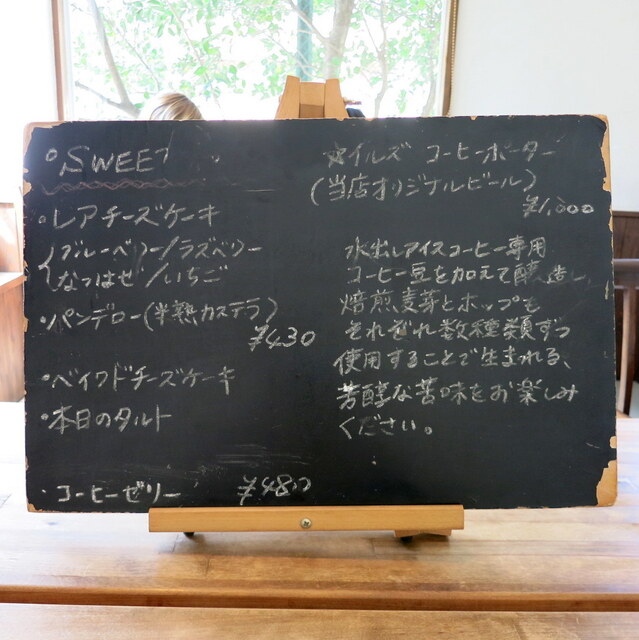 °SWEET
・レアチーズケーキ
(ブルーベリー/ラズベリー
(なつはぜ/いちご
・パンデロー(半熟カステラ)
¥430
・ベイクドチーズケーキ
・本日のタルト
・コーヒーゼリー ¥480
☆イルズ コーヒーポーター
(当店オリジナルビール)
¥1,000
水出しアイスコーヒー専用
コーヒー豆を加えて醸造し、
焙煎麦芽とホップも
それぞれ数種類ずつ
使用することで生まれる、
芳醇な苦味をお楽しみ
ください。